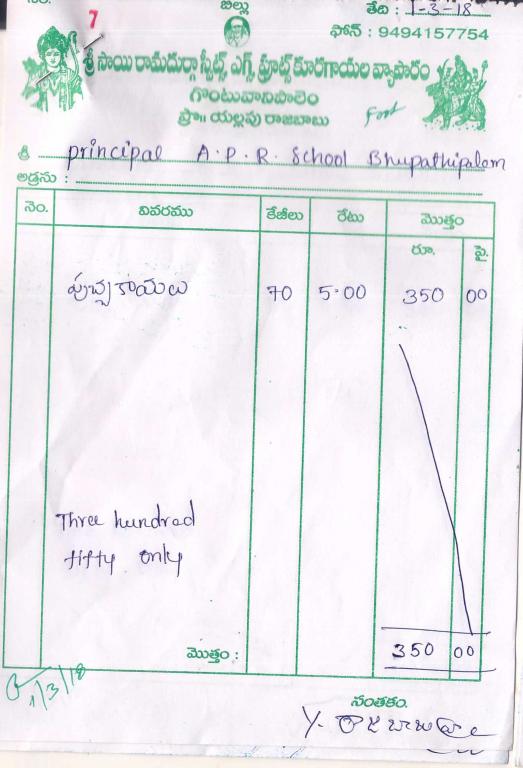 నెం.
బిల్లు
తేది : 1-3-18
7
ఫోన్ : 9494157754
శ్రీ సాయి రామదుర్గా స్వీట్స్, ఎగ్స్, ఫ్రూట్స్ కూరగాయల వ్యాపారం
గొంటువానిపాలెం
ప్రొ॥ యల్లపు రాజబాబు
శ్రీ principal A.P.R. School Bhupathipalem
అడ్రసు :
నెం. వివరము కేజీలు రేటు మొత్తం
రూ. పై.
పుచ్చకాయలు 70 5.00 350 00
Three hundred
fifty only
మొత్తం : 350 00
1/3/18
సంతకం.
Y. రాజబాబు